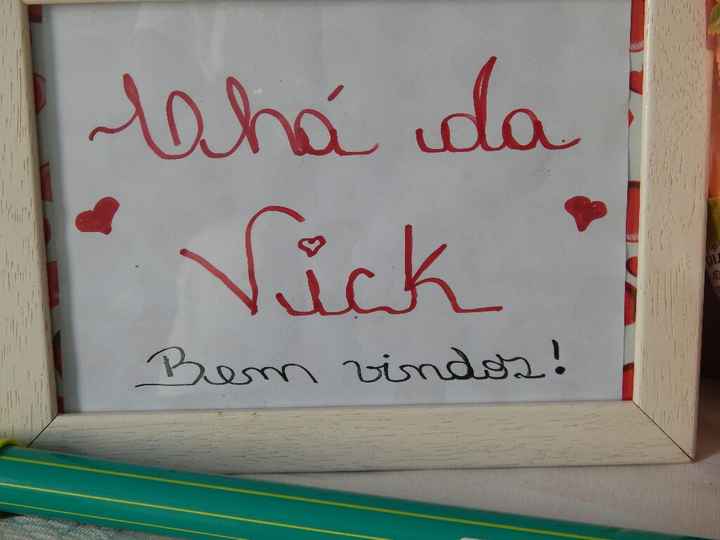 Chá da
Vick
Bem vindos!